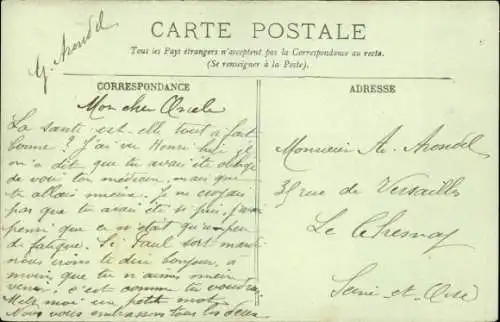 G. Arondel
CARTE POSTALE
Tout les Pays étrangers n'acceptent pas la Correspondance au recto.
(Se renseigner à la Poste).
CORRESPONDANCE
ADRESSE
Mon cher Oncle
La santé est-elle tout à fait
bonne ? J'ai vu Henri hier, il
m'a dit que tu avais été obligé
de voir ton médecin, mais que
tu allais mieux. Je ne croyais
pas que tu avais été si pris, j'avais
pensé que ce n'était qu'un peu
de fatigue. Si Paul sort mardi
nous irons te dire bonjour, à
moins que tu n'aimes mieux
venir, c'est comme tu voudras
Mets moi un petit mot.
Nous vous embrassons tous les deux
Monsieur A. Arondel
35 rue de Versailles
Le Chesnay
Seine-et-Oise